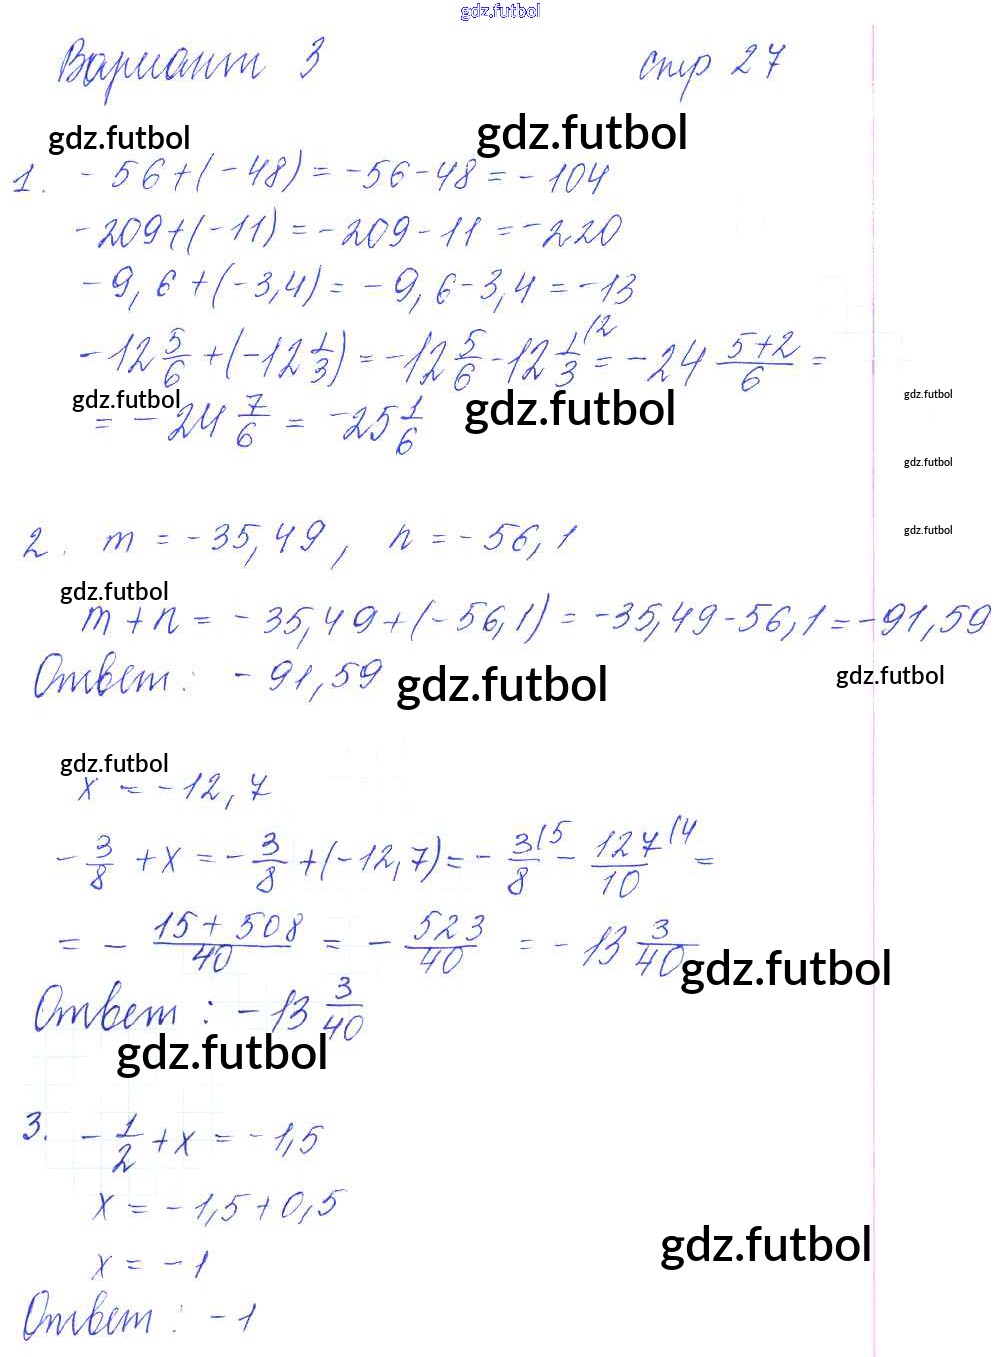 gdz.futbol
Вариант 3 стр 27
gdz.futbol gdz.futbol
1. -56+(-48)=-56-48=-104
-209+(-11)=-209-11=-220
-9,6+(-3,4)=-9,6-3,4=-13
-12 5/6 +(-12 1/3)=-12 5/6 -12 1/3 (2 = -24 5+2/6 =
gdz.futbol gdz.futbol gdz.futbol
= -24 7/6 = -25 1/6
gdz.futbol
gdz.futbol
2. m=-35,49, n=-56,1
gdz.futbol
m+n=-35,49+(-56,1)=-35,49-56,1=-91,59
Ответ: -91,59
gdz.futbol gdz.futbol
gdz.futbol
x=-12,7
-3/8 +x=-3/8 +(-12,7)=-3/8 (5 - 127/10 (4 =
= - 15+508/40 = - 523/40 = -13 3/40
gdz.futbol
Ответ: -13 3/40
gdz.futbol
3. -1/2 +x=-1,5
x=-1,5+0,5
gdz.futbol
x=-1
Ответ: -1